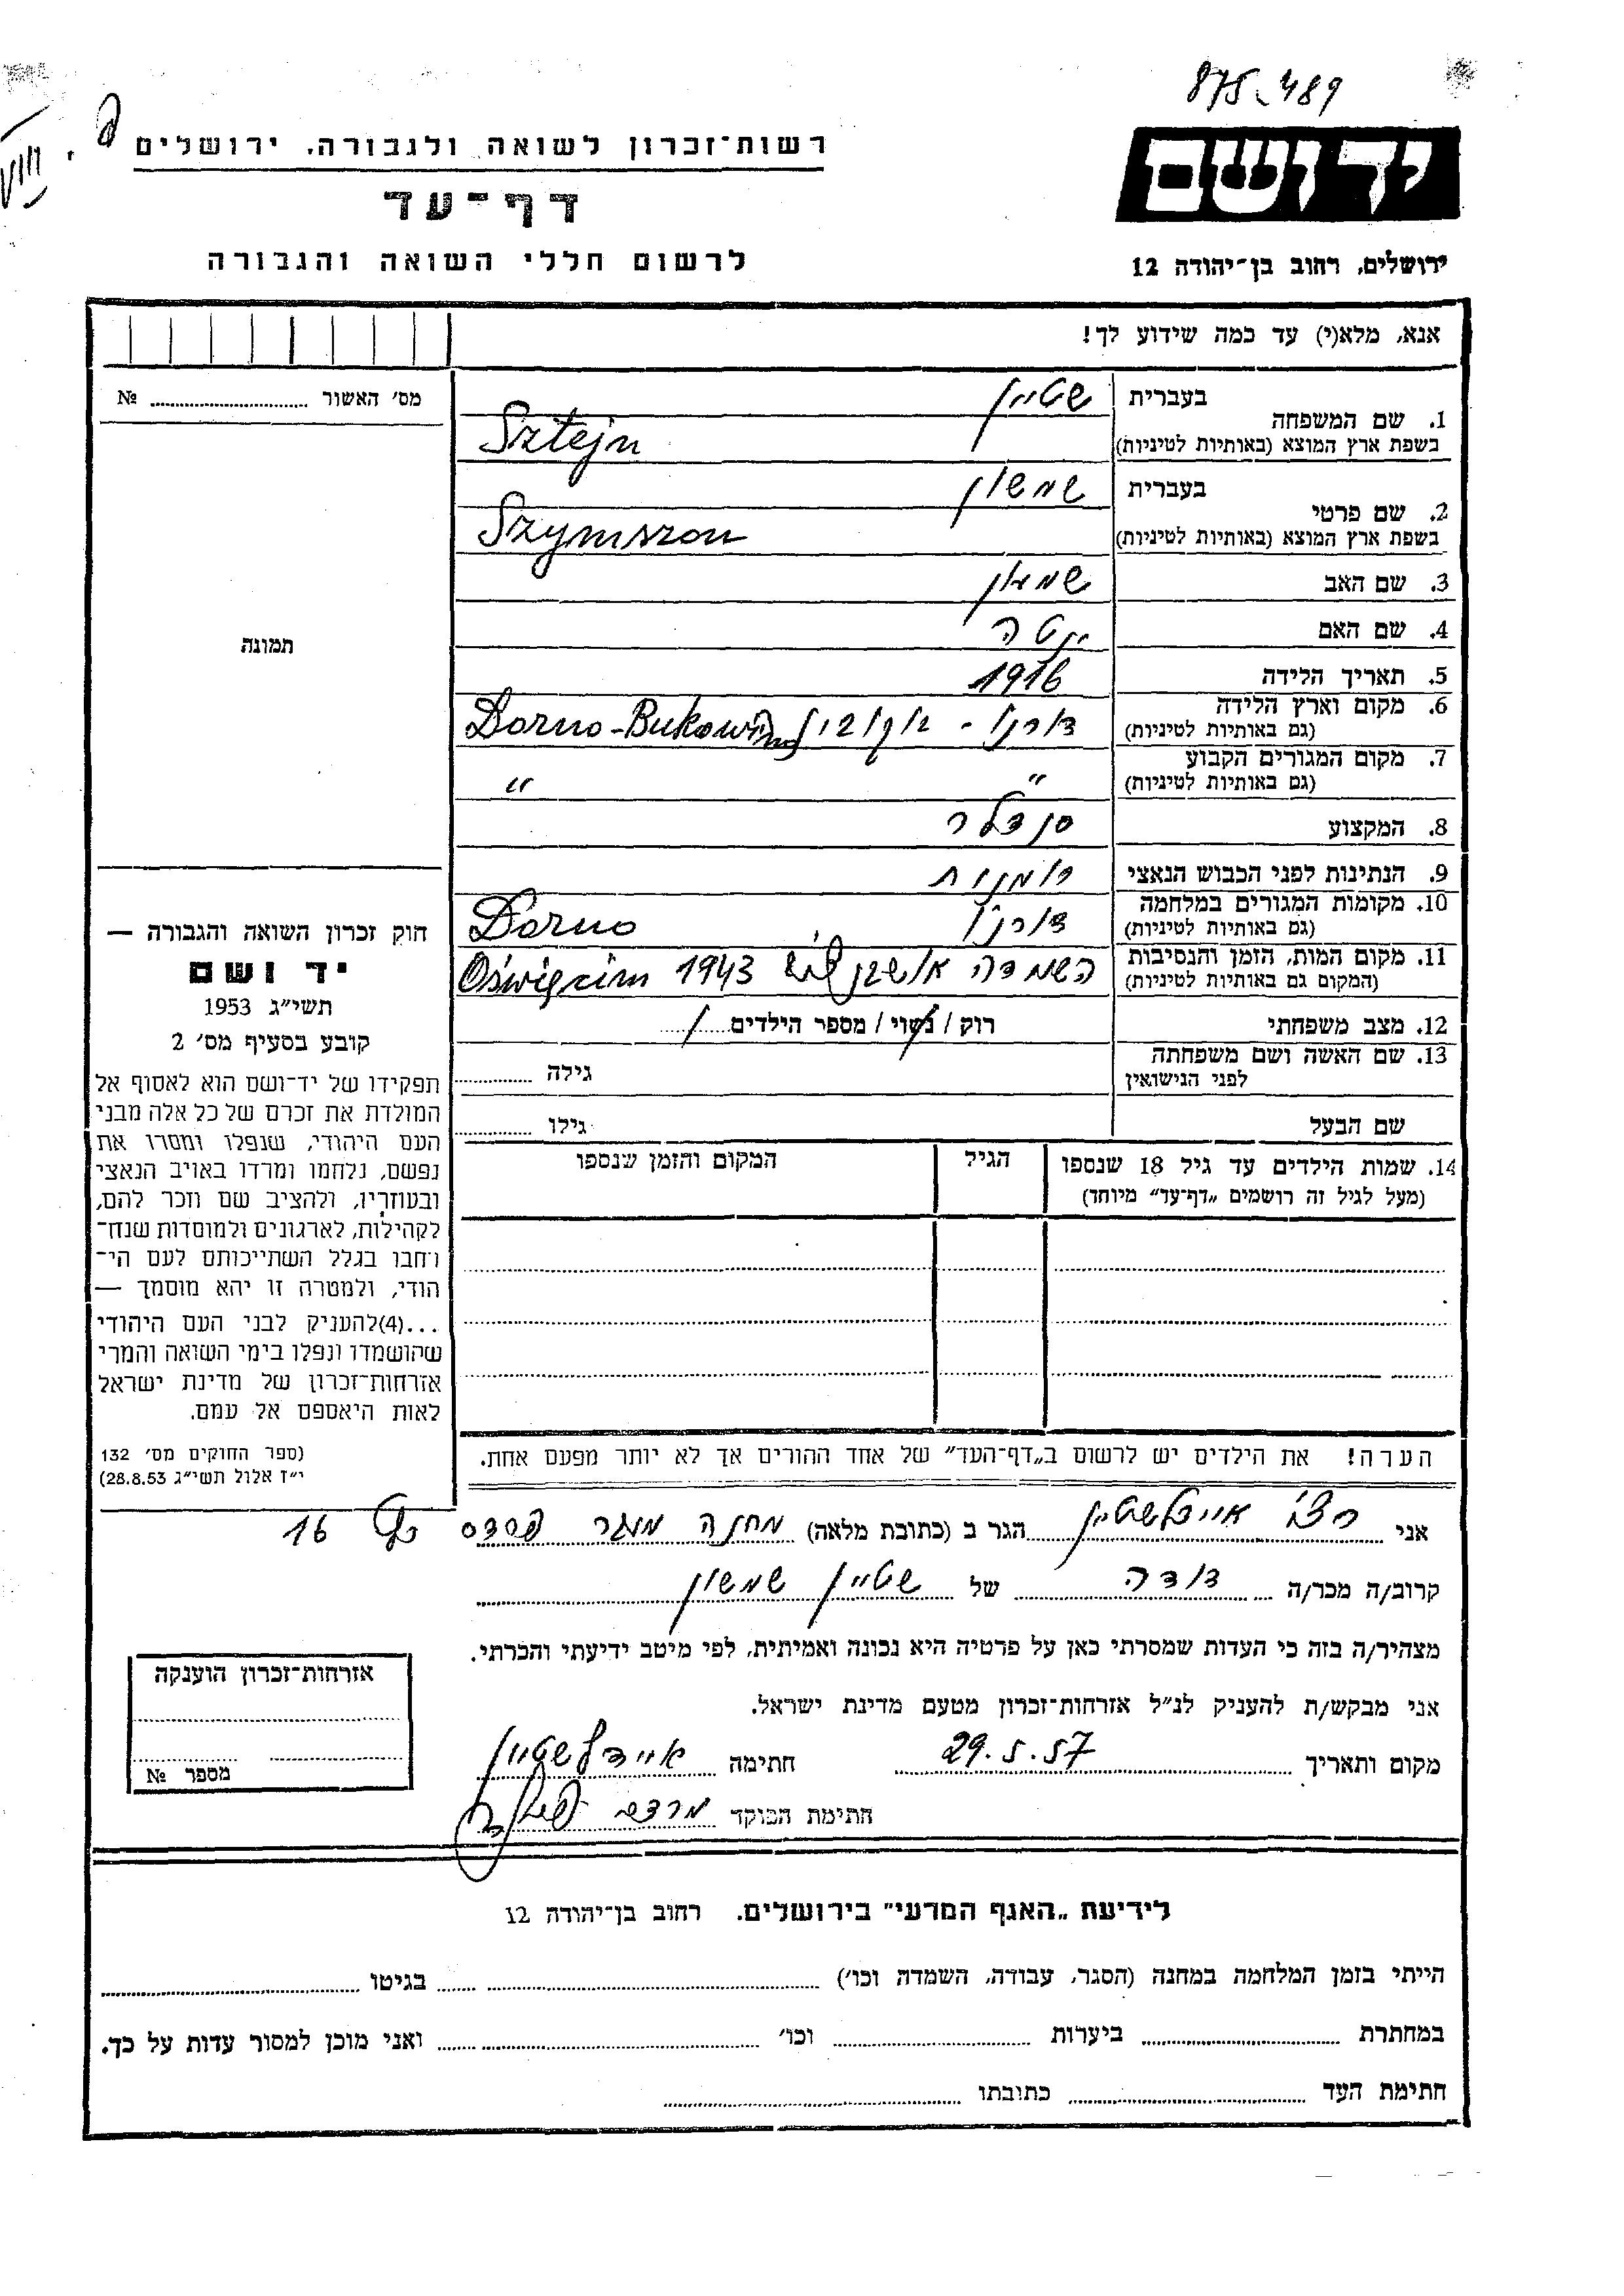 875-489
רשות־זכרון לשואה ולגבורה, ירושלים
יד ושם
דף־עד
לרשום חללי השואה והגבורה
ירושלים, רחוב בן־יהודה 12
אנא, מלא(י) עד כמה שידוע לך!
מס׳ האשור № 
תמונה
1. שם המשפחה בעברית שטיין
בשפת ארץ המוצא (באותיות לטיניות) Sztejn
2. שם פרטי בעברית שמשון
בשפת ארץ המוצא (באותיות לטיניות) Szymszon
3. שם האב שמעון
4. שם האם יטה
5. תאריך הלידה 1916
6. מקום וארץ הלידה (גם באותיות לטיניות) דורנו - בוקובינ Dorno-Bukowina
7. מקום המגורים הקבוע (גם באותיות לטיניות) " "
8. המקצוע סנדלר
9. הנתינות לפני הכבוש הנאצי רומנית
10. מקומות המגורים במלחמה (גם באותיות לטיניות) דורנו Dorno
11. מקום המות, הזמן והנסיבות (המקום גם באותיות לטיניות) השמדה 1943 Oświęcim
12. מצב משפחתי רוק / נשוי / מספר הילדים /
13. שם האשה ושם משפחתה לפני הנישואין גילה
שם הבעל גילו
14. שמות הילדים עד גיל 18 שנספו הגיל המקום והזמן שנספו
(מעל לגיל זה רושמים „דף־עד״ מיוחד)
הערה! את הילדים יש לרשום ב„דף־העד״ של אחד ההורים אך לא יותר מפעם אחת.
חוק זכרון השואה והגבורה —
יד ושם
תשי״ג 1953
קובע בסעיף מס׳ 2
תפקידו של יד־ושם הוא לאסוף אל
המולדת את זכרם של כל אלה מבני
העם היהודי, שנפלו ומסרו את
נפשם, נלחמו ומרדו באויב הנאצי
ובעוזריו, ולהציב שם וזכר להם,
לקהילות, לארגונים ולמוסדות שנח־
רחבו בגלל השתייכותם לעם הי־
הודי, ולמטרה זו יהא מוסמך —
...(4)להעניק לבני העם היהודי
שהושמדו ונפלו בימי השואה והמרי
אזרחות־זכרון של מדינת ישראל
לאות היאספם אל עמם.
(ספר החוקים מס׳ 132
י״ז אלול תשי״ג 28.8.53)
אני איידלשטיין הגר ב (כתובת מלאה) מחנה פרדס 16
קרוב/ה מכר/ה דודה של שטיין שמשון
מצהיר/ה בזה כי העדות שמסרתי כאן על פרטיה היא נכונה ואמיתית, לפי מיטב ידיעתי והכרתי.
אני מבקש/ת להעניק לנ״ל אזרחות־זכרון מטעם מדינת ישראל.
מקום ותאריך 29.5.57 חתימה איידלשטיין
חתימת הפוקד
אזרחות־זכרון הוענקה
מספר №
לידיעת „האגף המדעי״ בירושלים. רחוב בן־יהודה 12
הייתי בזמן המלחמה במחנה (הסגר, עבודה, השמדה וכו׳) בגיטו
במחתרת ביערות וכו׳ ואני מוכן למסור עדות על כך.
חתימת העד כתובתו